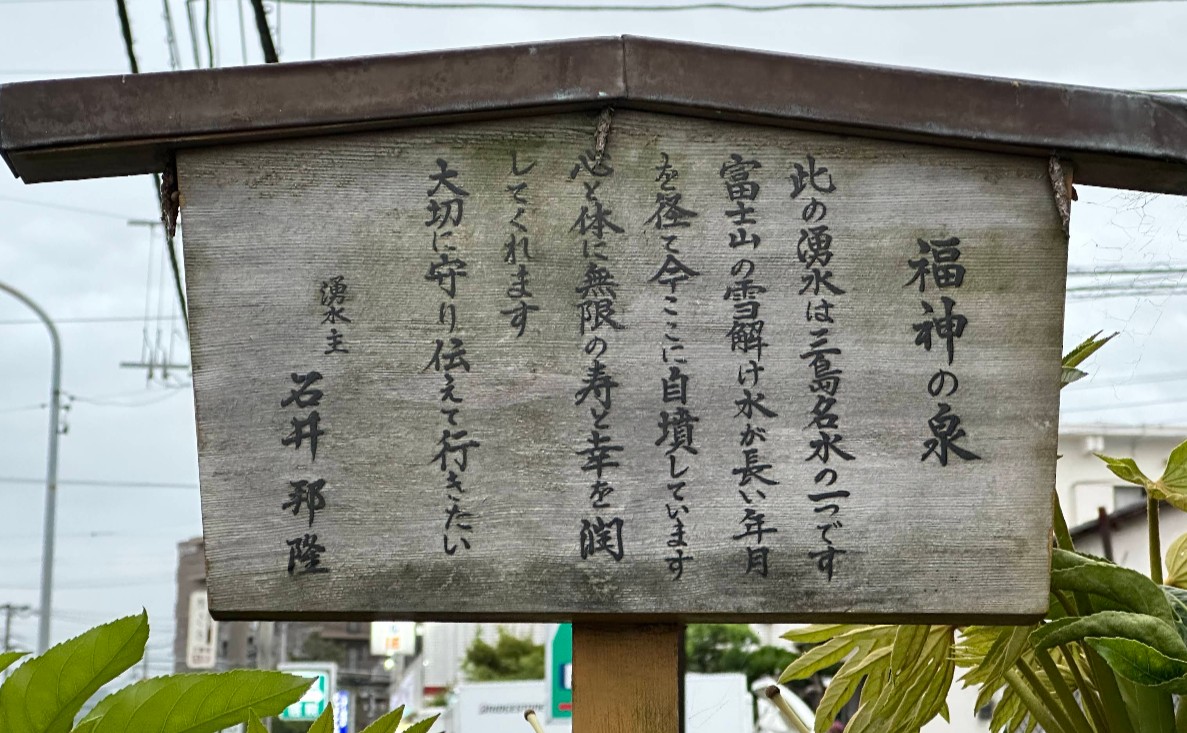 福神の泉
此の湧水は三島名水の一つです
富士山の雪解け水が長い年月
を径て今ここに自墳しています
心と体に無限の寿と幸を潤
してくれます
大切に守り伝えて行きたい
湧水主
石井邦隆
BRIDGESTONE